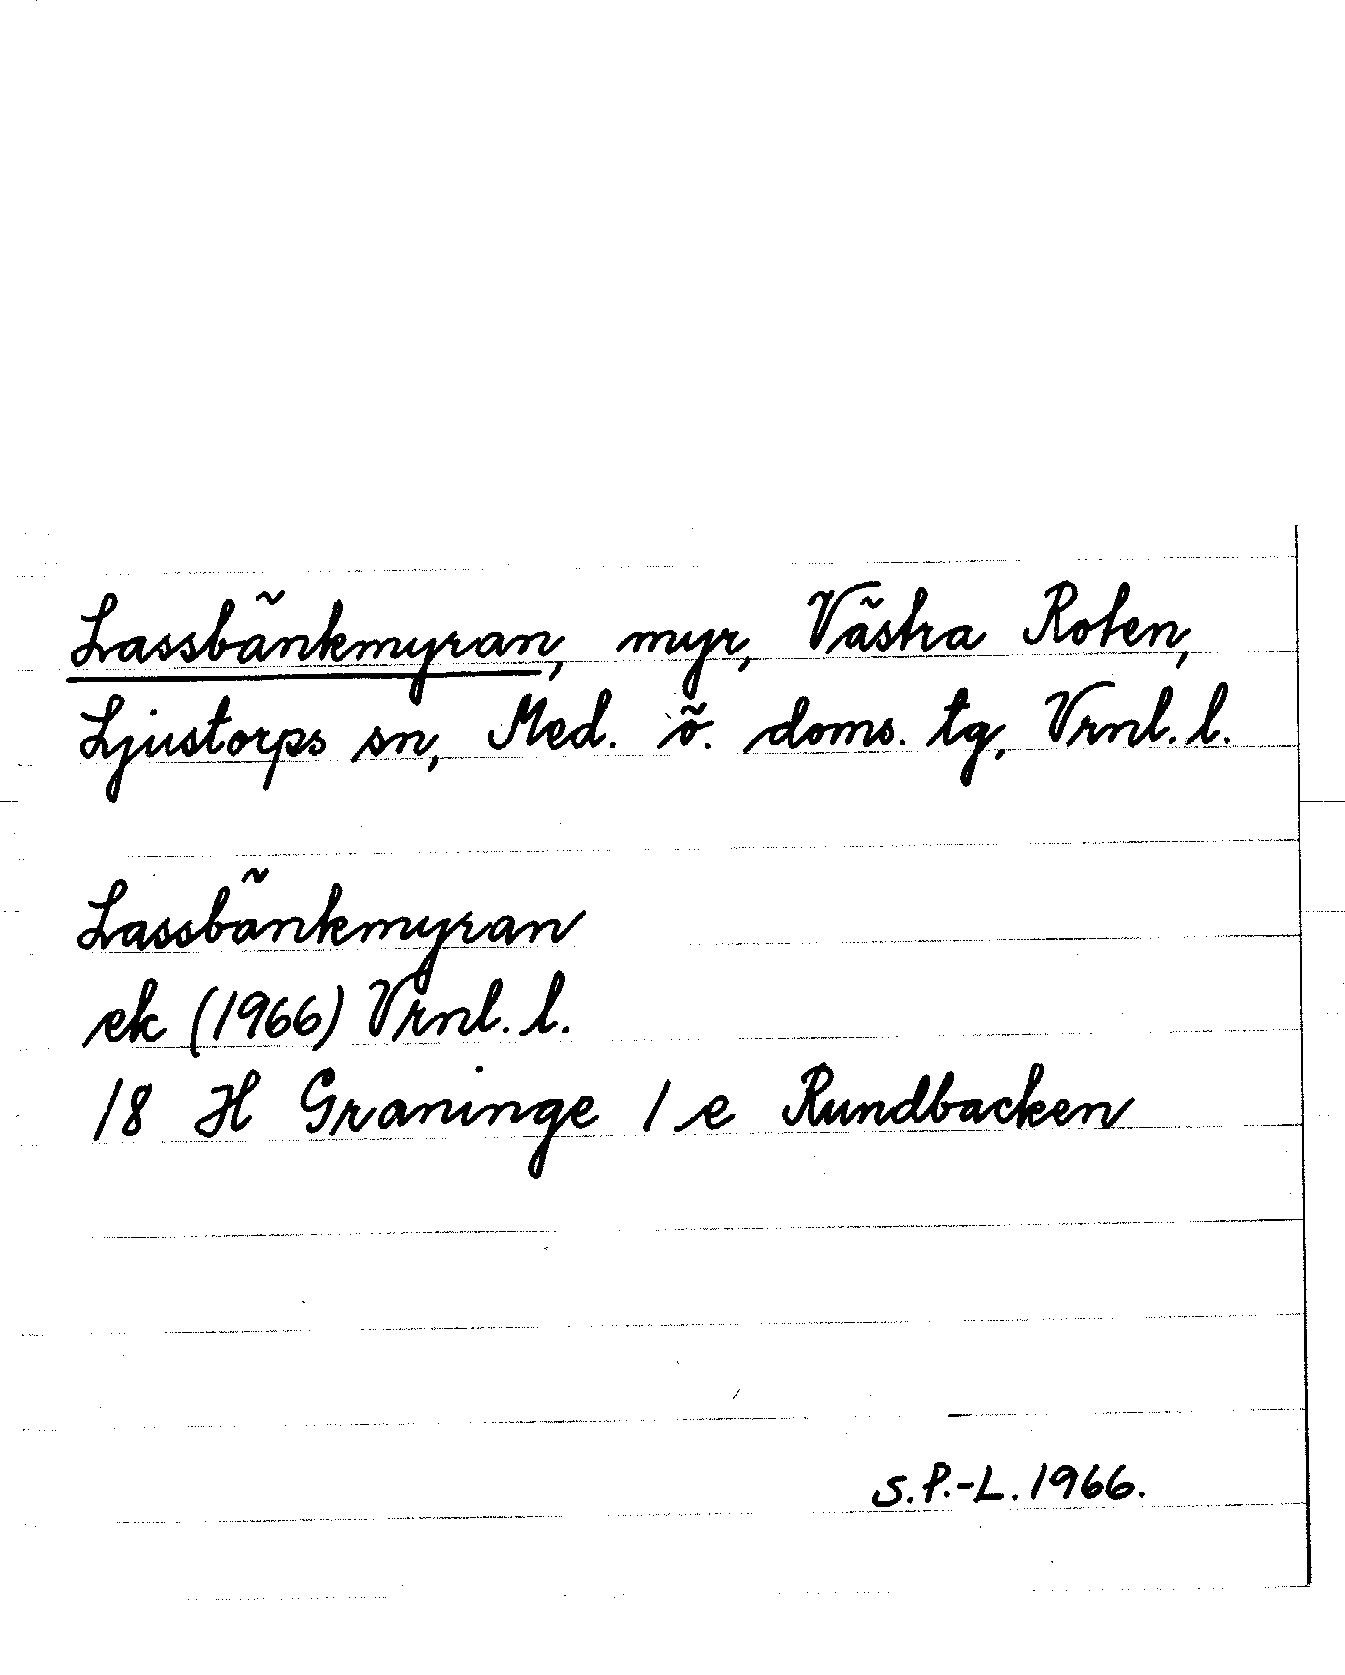 Lassbänkmyran, myr, Västra Roten,
Ljustorps sn, Med. ö. doms. tg, Vrnl. l.
Lassbänkmyran
ek (1966) Vrnl. l.
18 H Graninge 1 e Rundbacken
S.P.-L. 1966.